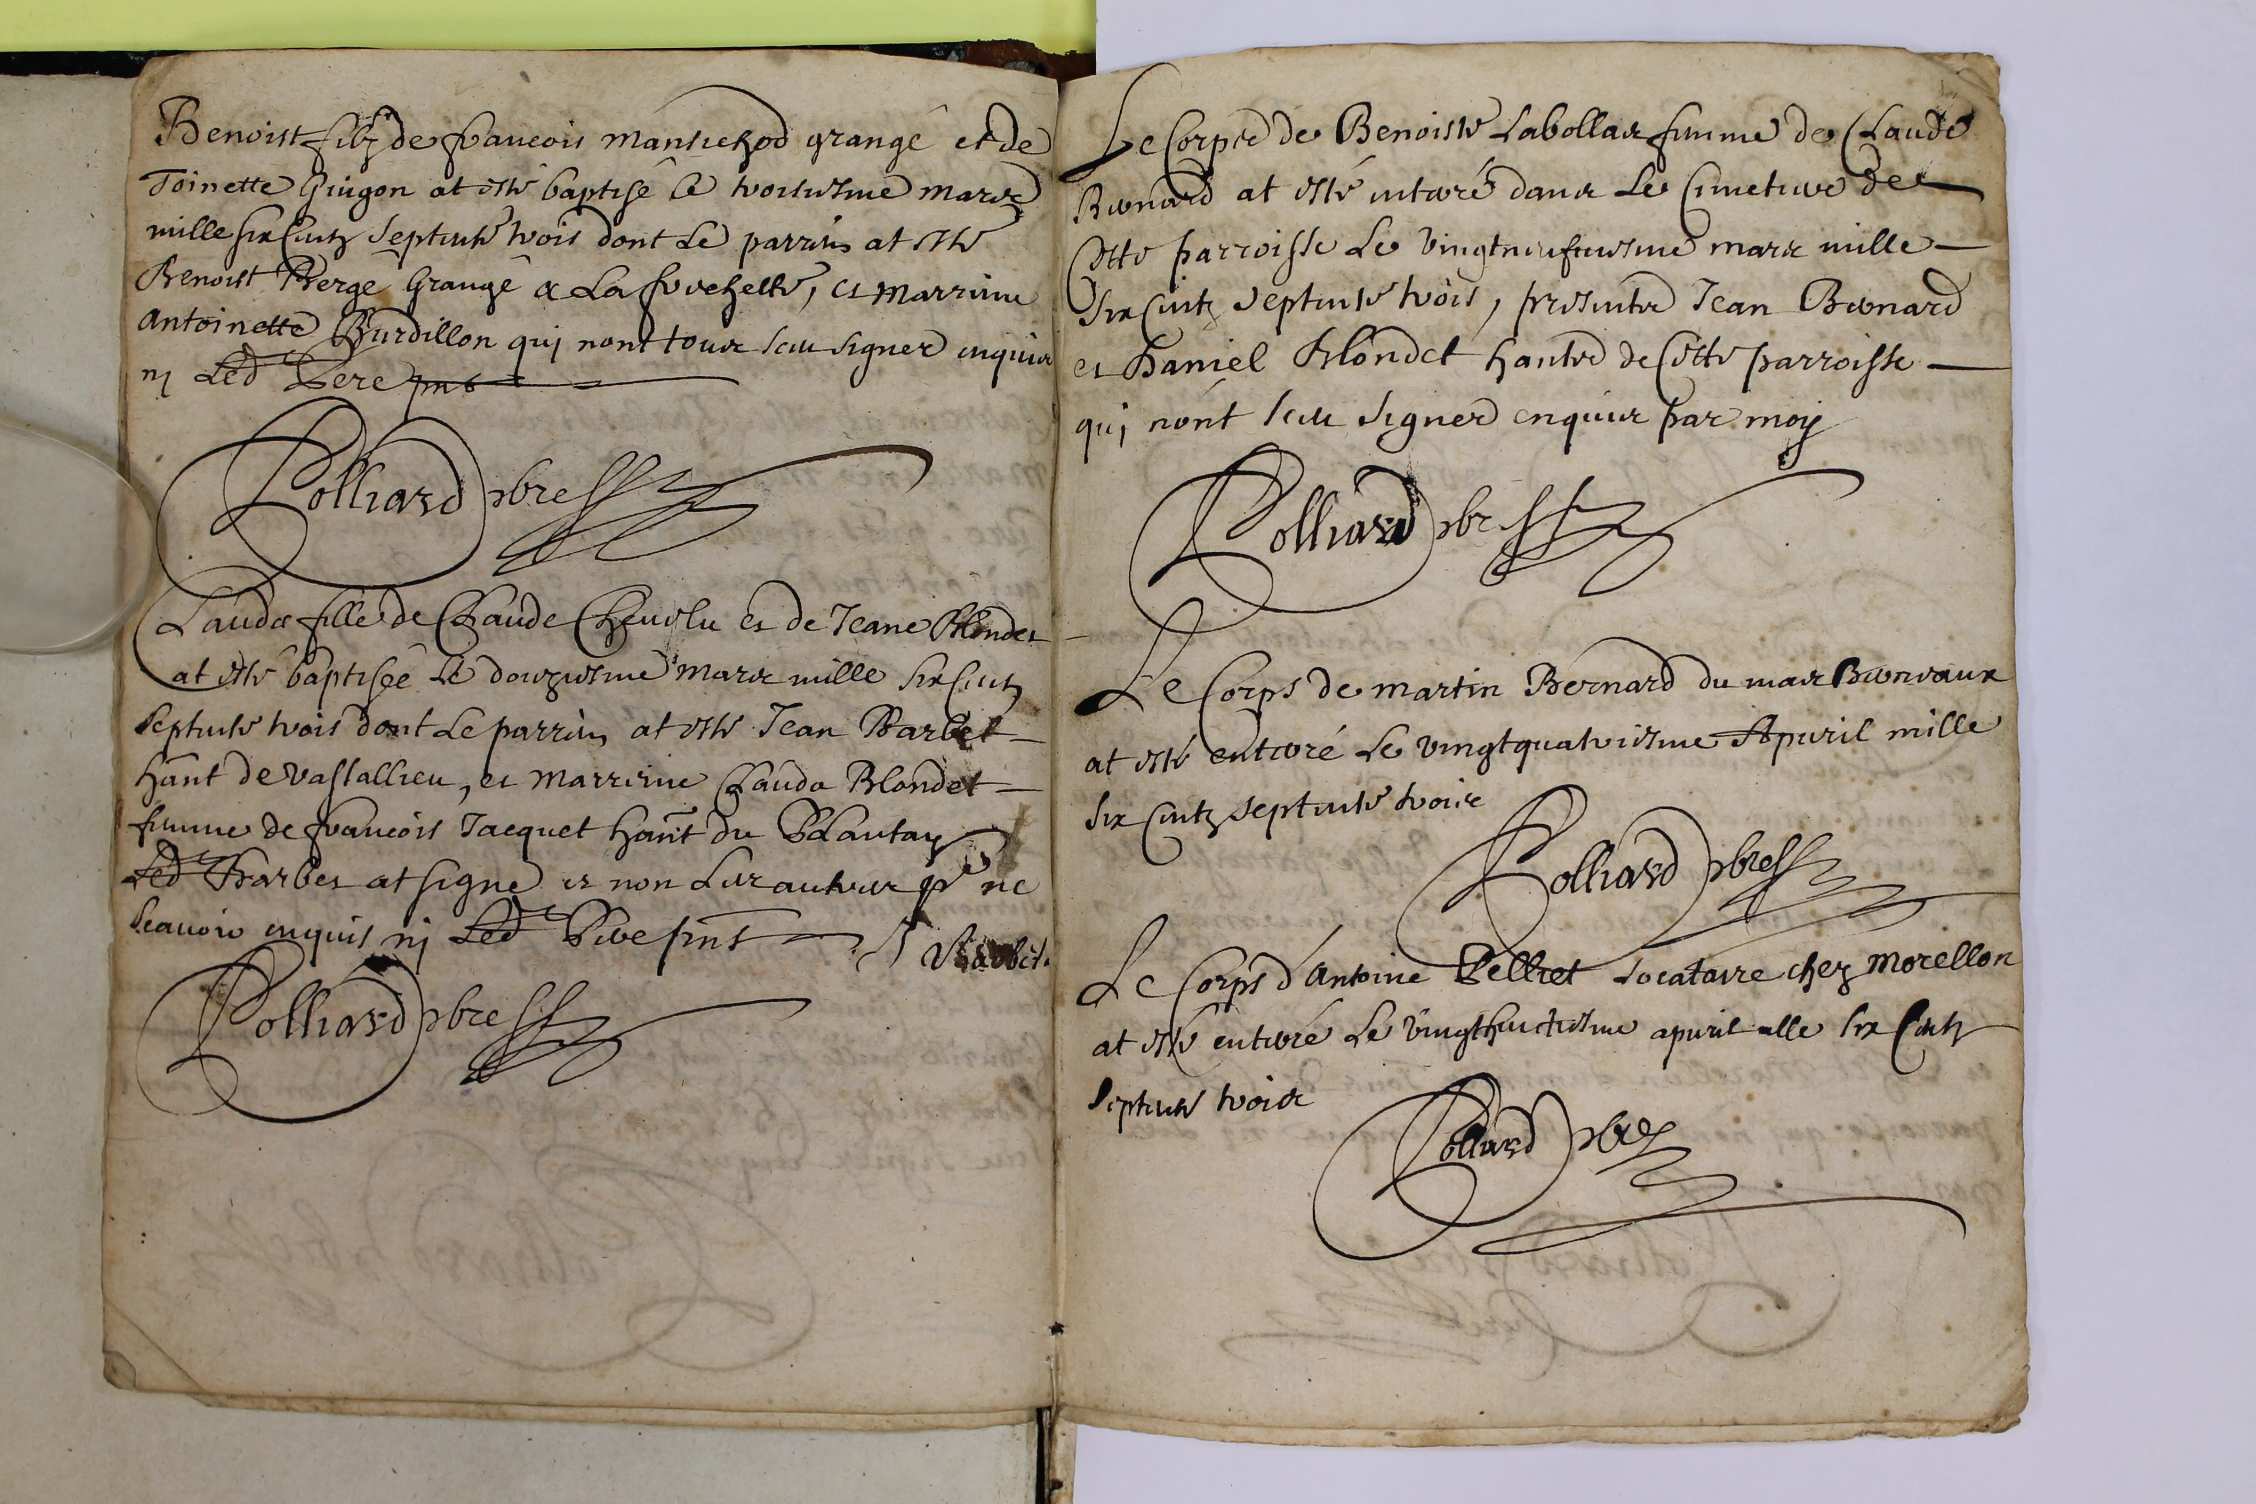 Benoist filz de francois mantichod grangé et de
Toinette Guigon at esté baptisé le troisiesme mars
mille six centz septente trois dont le parrin at esté
Benoist Bergé Grangé a La fouchette, et marrine
Antoinette Burdillon quj nont tous sceu signer enquis
nj Led Pere pnt
Polliard pbre
Clauda fille de Claude Chevelu et de Jeane Blondet
at esté baptiséé le douziesme mars mille six centz
septente trois dont Le parrin at esté Jean Barbet
hant de vassallieu, et marrine Clauda Blondet
femme de francois Jacquet hant du Plantay
Led Barbet at signé et non Les autres pr ne
scavoir enquis nj Led Pere pnt J Barbet
Polliard pbre
Le Corps de Benoiste Labollas femme de Claude
Bernard at esté enterré dans Le Cimetiere de
Cette parroisse Le vingtneufiesme mars mille
six centz septente trois, presentz Jean Bernard
et Daniel Blondet hantz de Cette parroisse
quj nont sceu signer enquis par moy
Polliard pbre
Le Corps de martin Bernard du mas Bernoux
at esté enterré Le vingtquatriesme Apvril mille
six centz septente trois
Polliard pbre
Le Corps d'Antoine Pelliet Locataire chez Morellon
at esté enterré Le vingthuictiesme apvril mille six Centz
septente trois
Polliard pbre